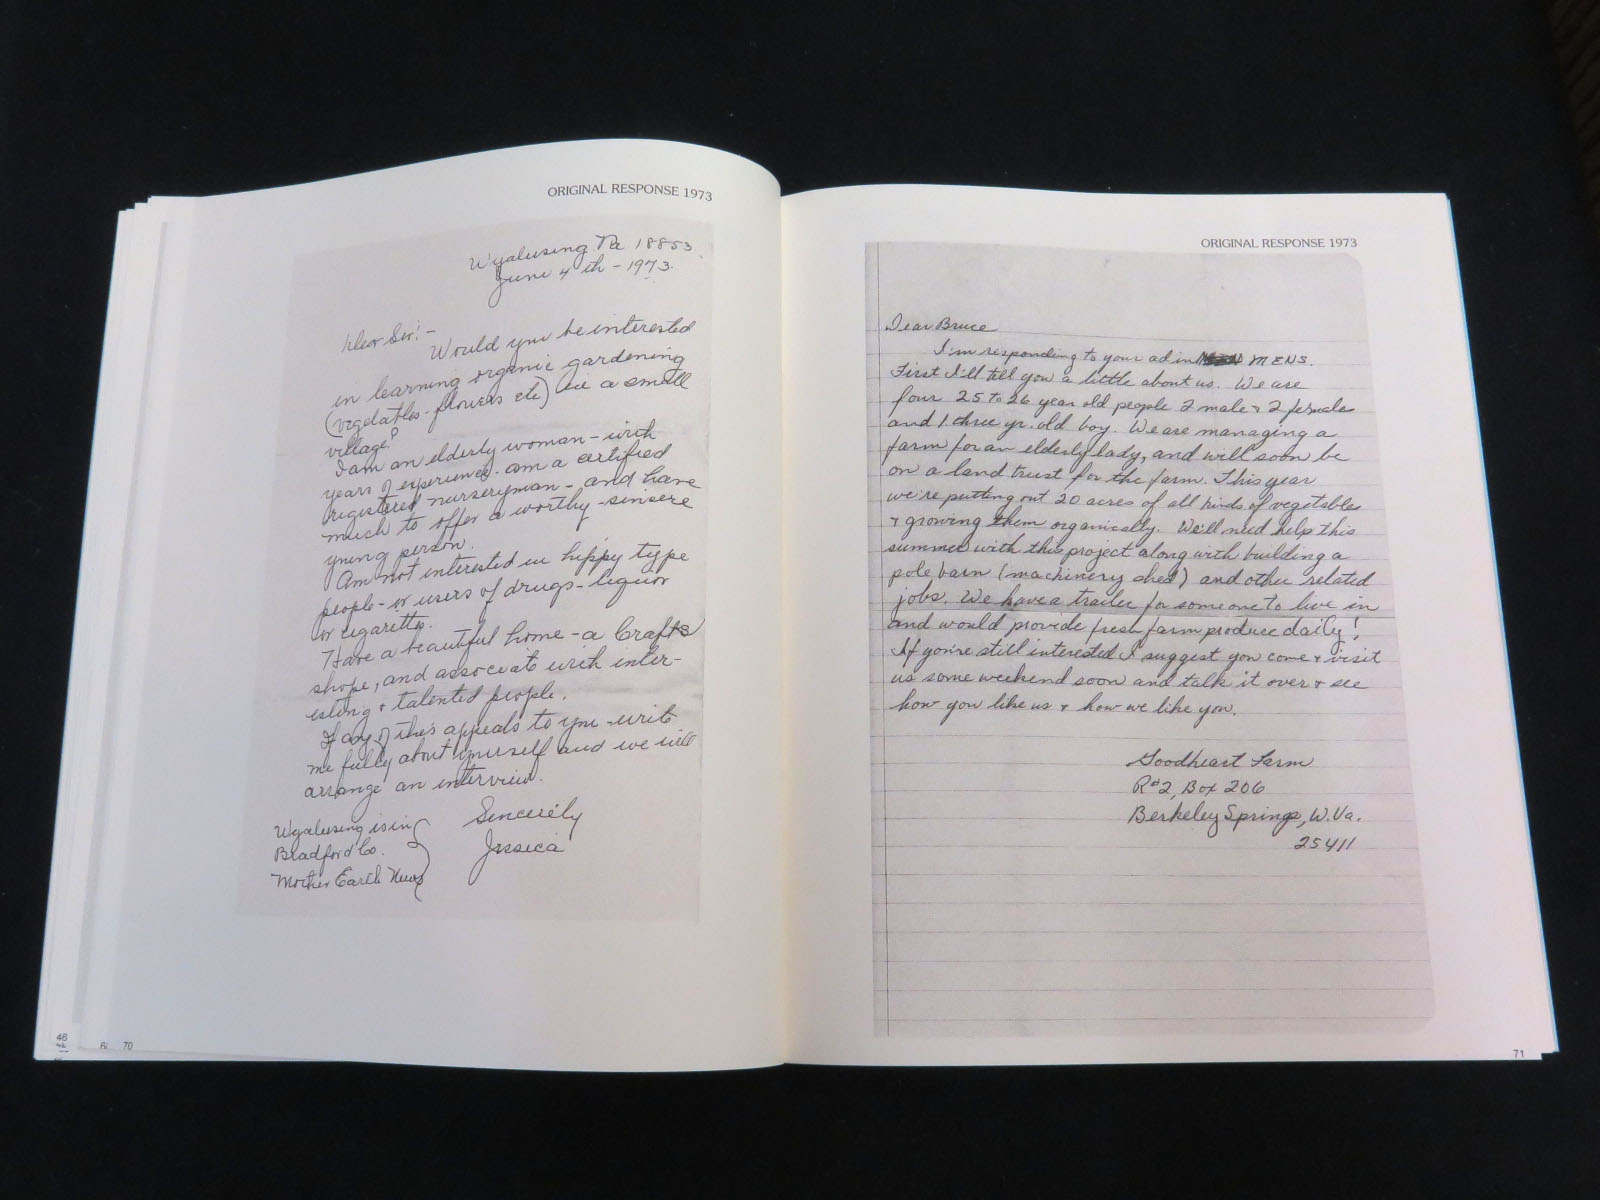 ORIGINAL RESPONSE 1973
Wyalusing Pa 18853
June 4th - 1973.
Dear Sir! -
Would you be interested
in learning organic gardening
(vegetables - flowers etc) in a small
village?
I am an elderly woman - with
years of experience. am a certified
registered nurseryman - and have
much to offer a worthy - sincere
young person.
Am not interested in hippy type
people - or users of drugs - liquor
or cigaretts.
Have a beautiful home - a Crafts
shope, and associate with inter-
esting & talented people.
If any of this appeals to you - write
me fully about yourself and we will
arrange an interview.
Sincerely
Jessica
Wyalusing is in
Bradford Co.
Mother Earth News
46
70
ORIGINAL RESPONSE 1973
Dear Bruce
I'm responding to your ad in MENS.
First I'll tell you a little about us. We are
four 25 to 26 year old people 2 male & 2 female
and 1 three yr. old boy. We are managing a
farm for an elderly lady, and will soon be
on a land trust for the farm. This year
we're putting out 20 acres of all kinds of vegetables
& growing them organically. We'll need help this
summer with this project along with building a
pole barn (machinery shed) and other related
jobs. We have a trailer for someone to live in
and would provide fresh farm produce daily!
If you're still interested I suggest you come & visit
us some weekend soon and talk it over & see
how you like us & how we like you.
Goodheart Farm
R#2, Box 206
Berkeley Springs, W. Va.
25411
71